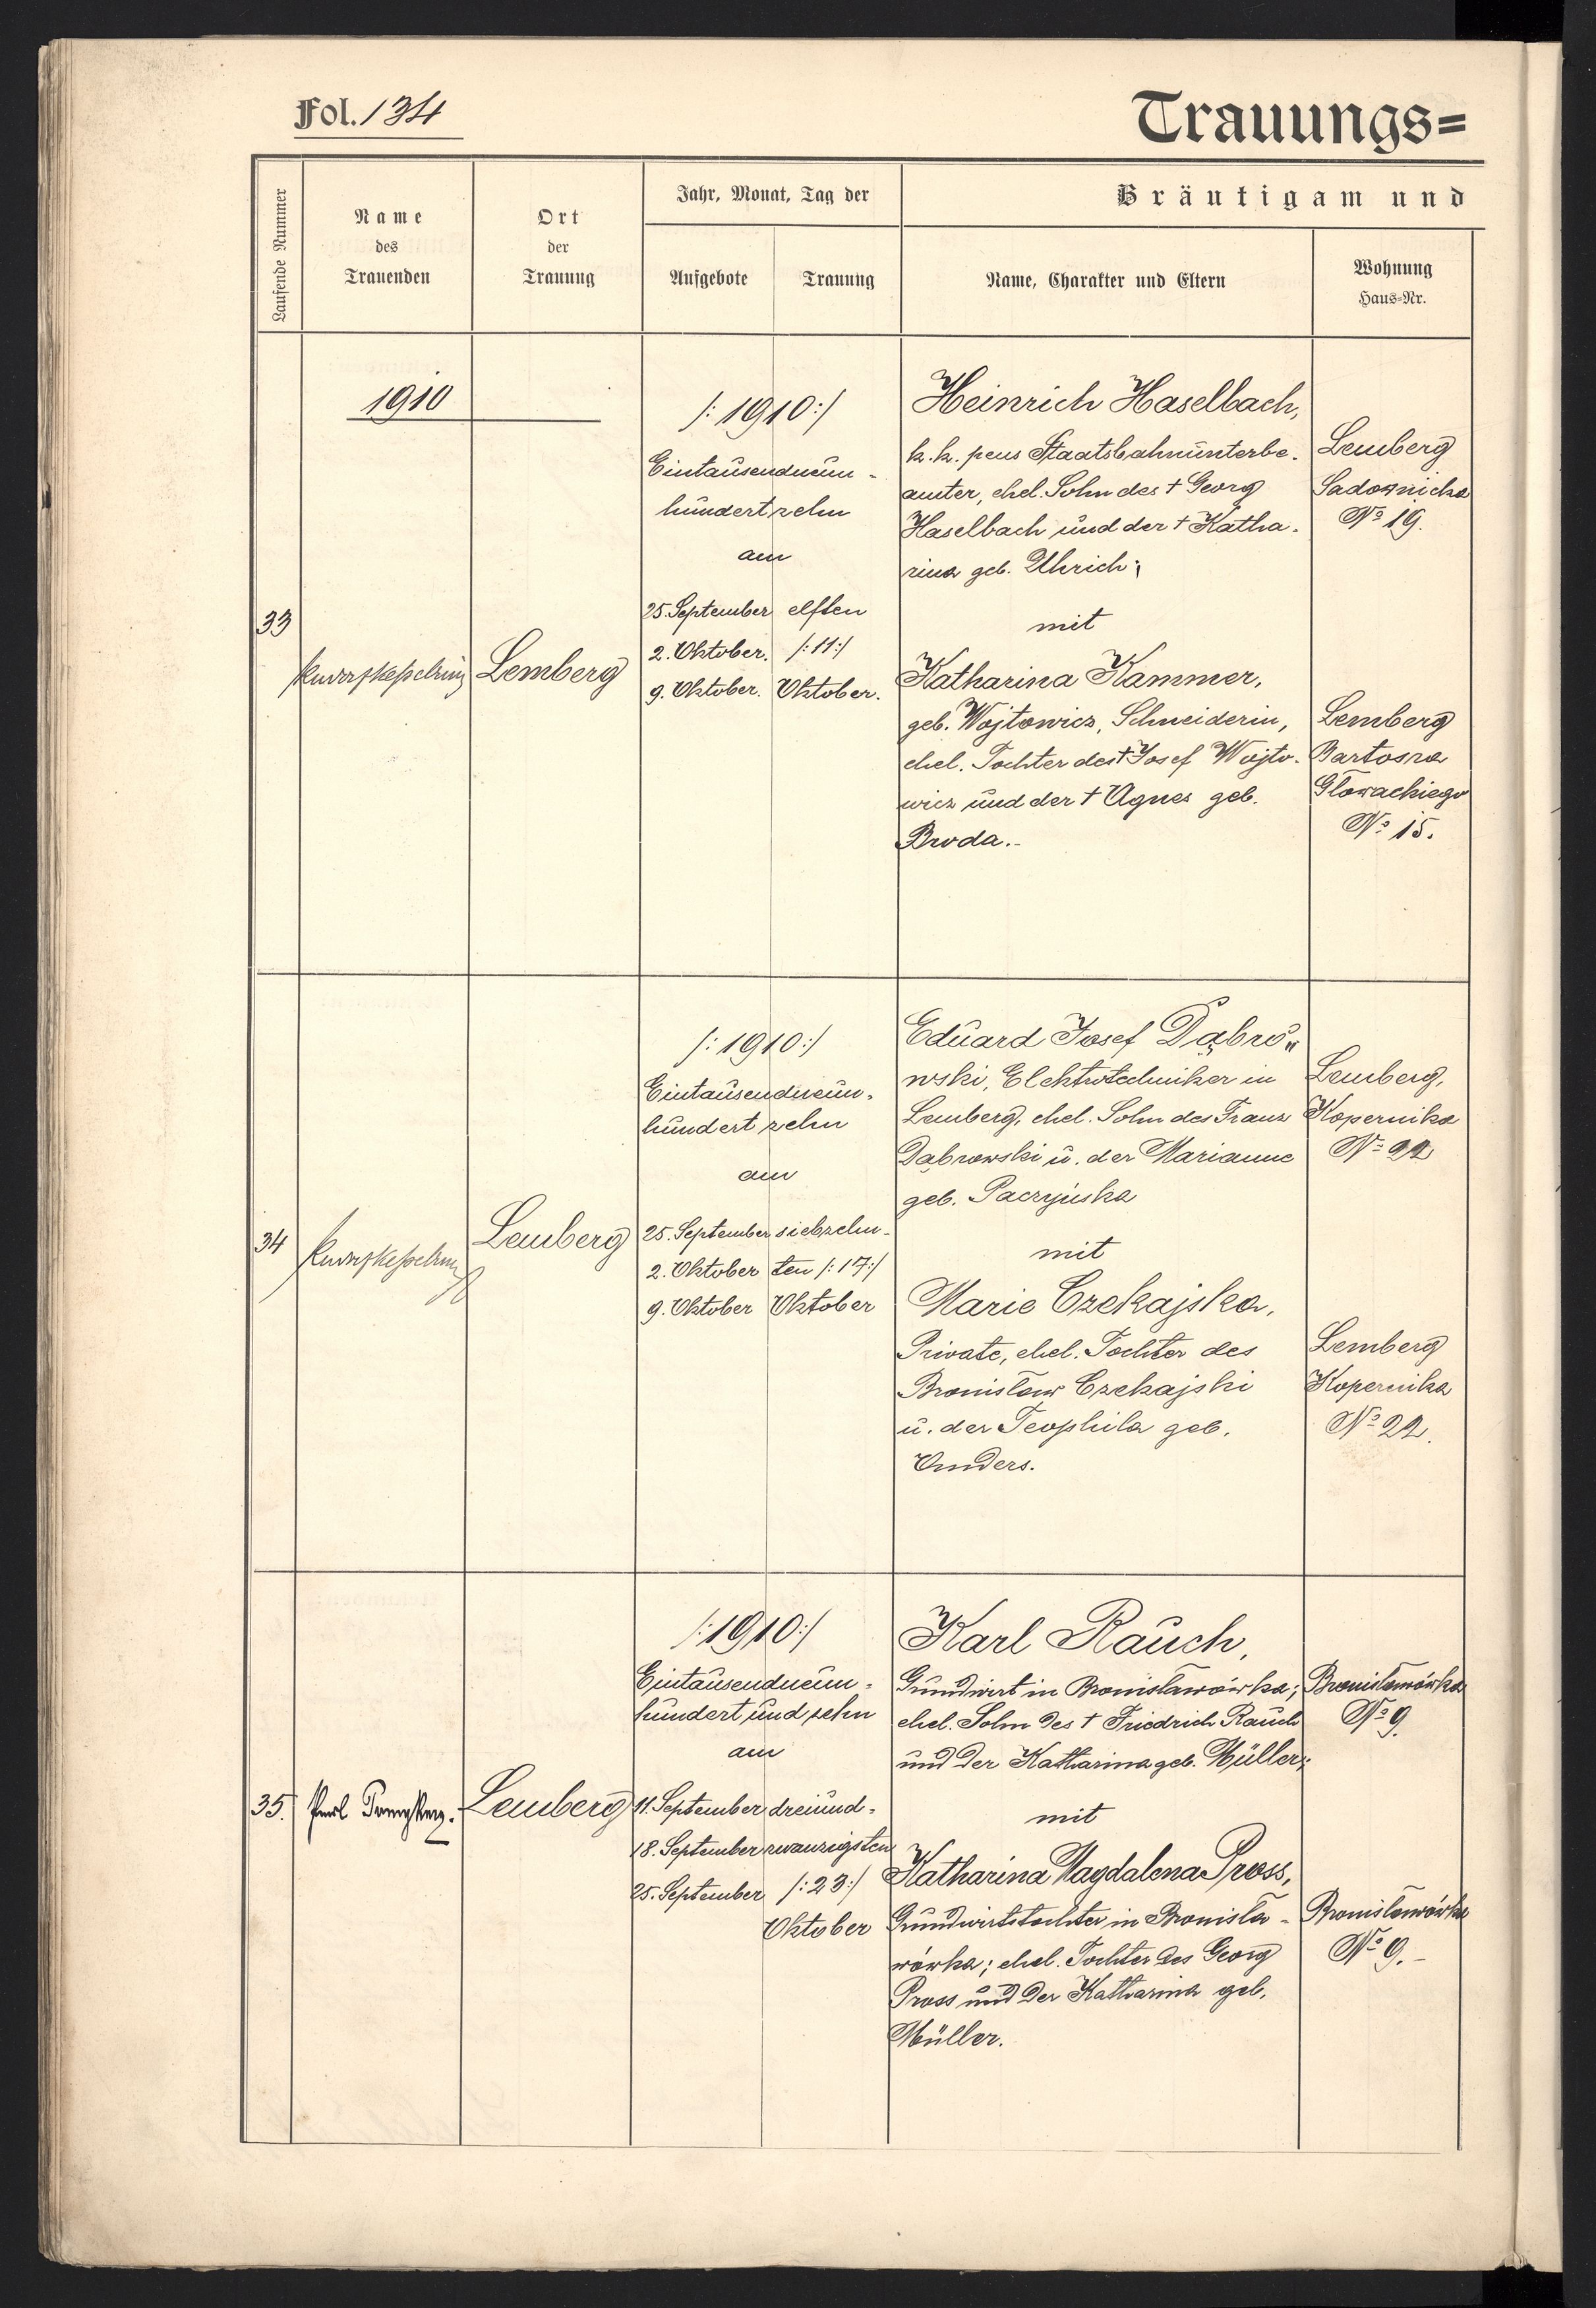 Fol. 134
Trauungs=
Laufende Nummer
Name
des
Trauenden
Ort
der
Trauung
Jahr, Monat, Tag der
Aufgebote
Trauung
Bräutigam und
Name, Charakter und Eltern
Wohnung
Haus-Nr.
1910
33
Lemberg
/: 1910 :/
Eintausendneun-
hundertzehn
am
25. September
2. Oktober.
9. Oktober.
elften
/: 11 :/
Oktober.
Heinrich Haselbach,
k. k. pens Staatsbahnunterbe-
amter, ehel. Sohn des † Georg
Haselbach und der † Katha-
rina geb. Uhrich;
mit
Katharina Kammer,
geb. Wojtowicz, Schneiderin,
ehel. Tochter des † Josef Wojto-
wicz und der † Agnes geb.
Broda.-
Lemberg
Sadownicka
No 19.
Lemberg
Bartosza
Głowackiego
No 15.
34
Lemberg
/: 1910 :/
Eintausendneun-
hundertzehn
am
25. September
2. Oktober
9. Oktober
siebzehn-
ten /: 17 :/
Oktober
Eduard Josef Dąbro"
wski, Elektrotechniker in
Lemberg, ehel. Sohn des Franz
Dąbrowski u. der Marianne
geb. Paczyńska
mit
Marie Czekajska,
Private, ehel. Tochter des
Bronisław Czekajski
u. der Teophila geb.
Lemberg,
Kopernika
No 22
Lemberg
Kopernika
No 22.
35.
Lemberg
/: 1910 :/
Eintausendneun-
hundert und zehn
am
11. September
18. September
25. September
dreiund-
zwanzigsten
/: 23 :/
Oktober
Karl Rauch,
Grundwirt in Bronisławówka;
ehel. Sohn des † Friedrich Rauch
und der Katharina geb. Müller;
mit
Katharina Magdalena Pross,
Grundwirtstochter in Bronisła-
wówka; ehel. Tochter des Georg
Pross und der Katharina geb.
Müller.
Bronisławówka
No 9.
Bronisławówka
No 9.-